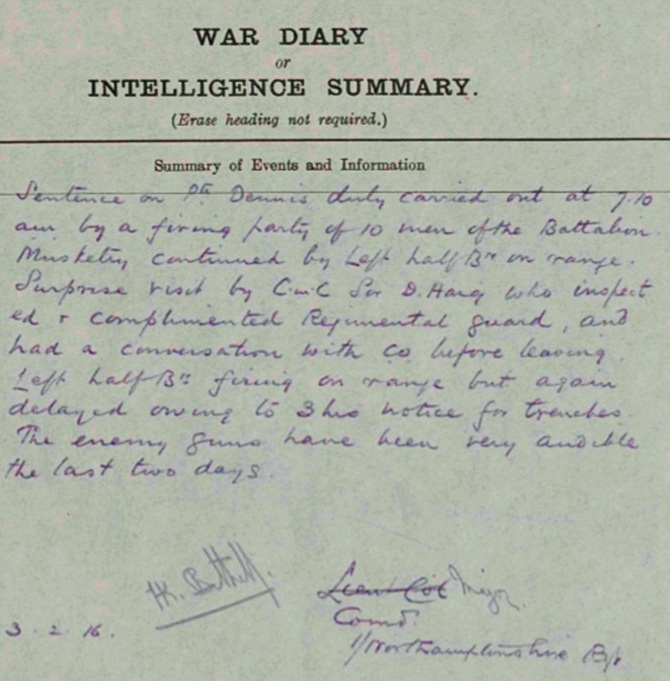 WAR DIARY
or
INTELLIGENCE SUMMARY.
(Erase heading not required.)
Summary of Events and Information
Sentence on Pte Dennis duly carried out at 7.10
am by a firing party of 10 men of the Battalion.
Musketry continued by Left half Bn on range.
Surprise visit by C in C Sir D. Haig who inspect
ed + complimented Regimental guard, and
had a conversation with CO before leaving.
Left half Bn firing on range but again
delayed owing to 3 hrs notice for trenches.
The enemy guns have been very audible
the last two days.
Lieut Col Major
Comd.
3.2.16.
1/Northamptonshire